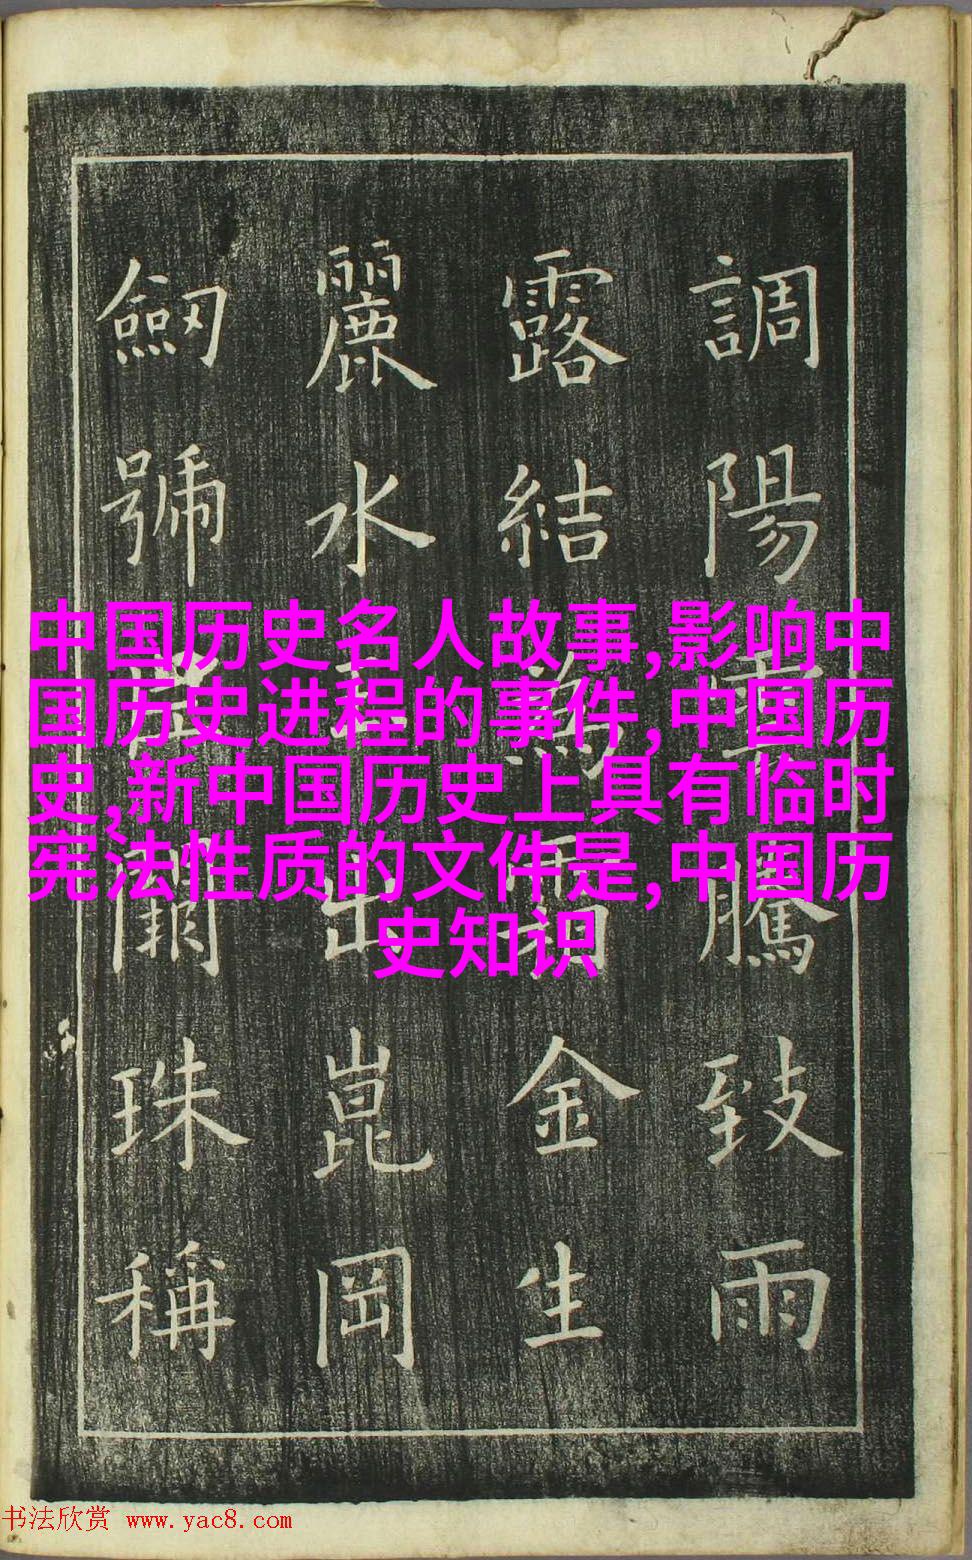 調陽雲騰致雨
露結爲霜金生
麗水玉出崑岡
劒號闕珠稱
中国历史名人故事,影响中
国历史进程的事件,中国历
史,新中国历史上具有临时
宪法性质的文件是,中国历
史知识
书法欣赏 www.yac8.com